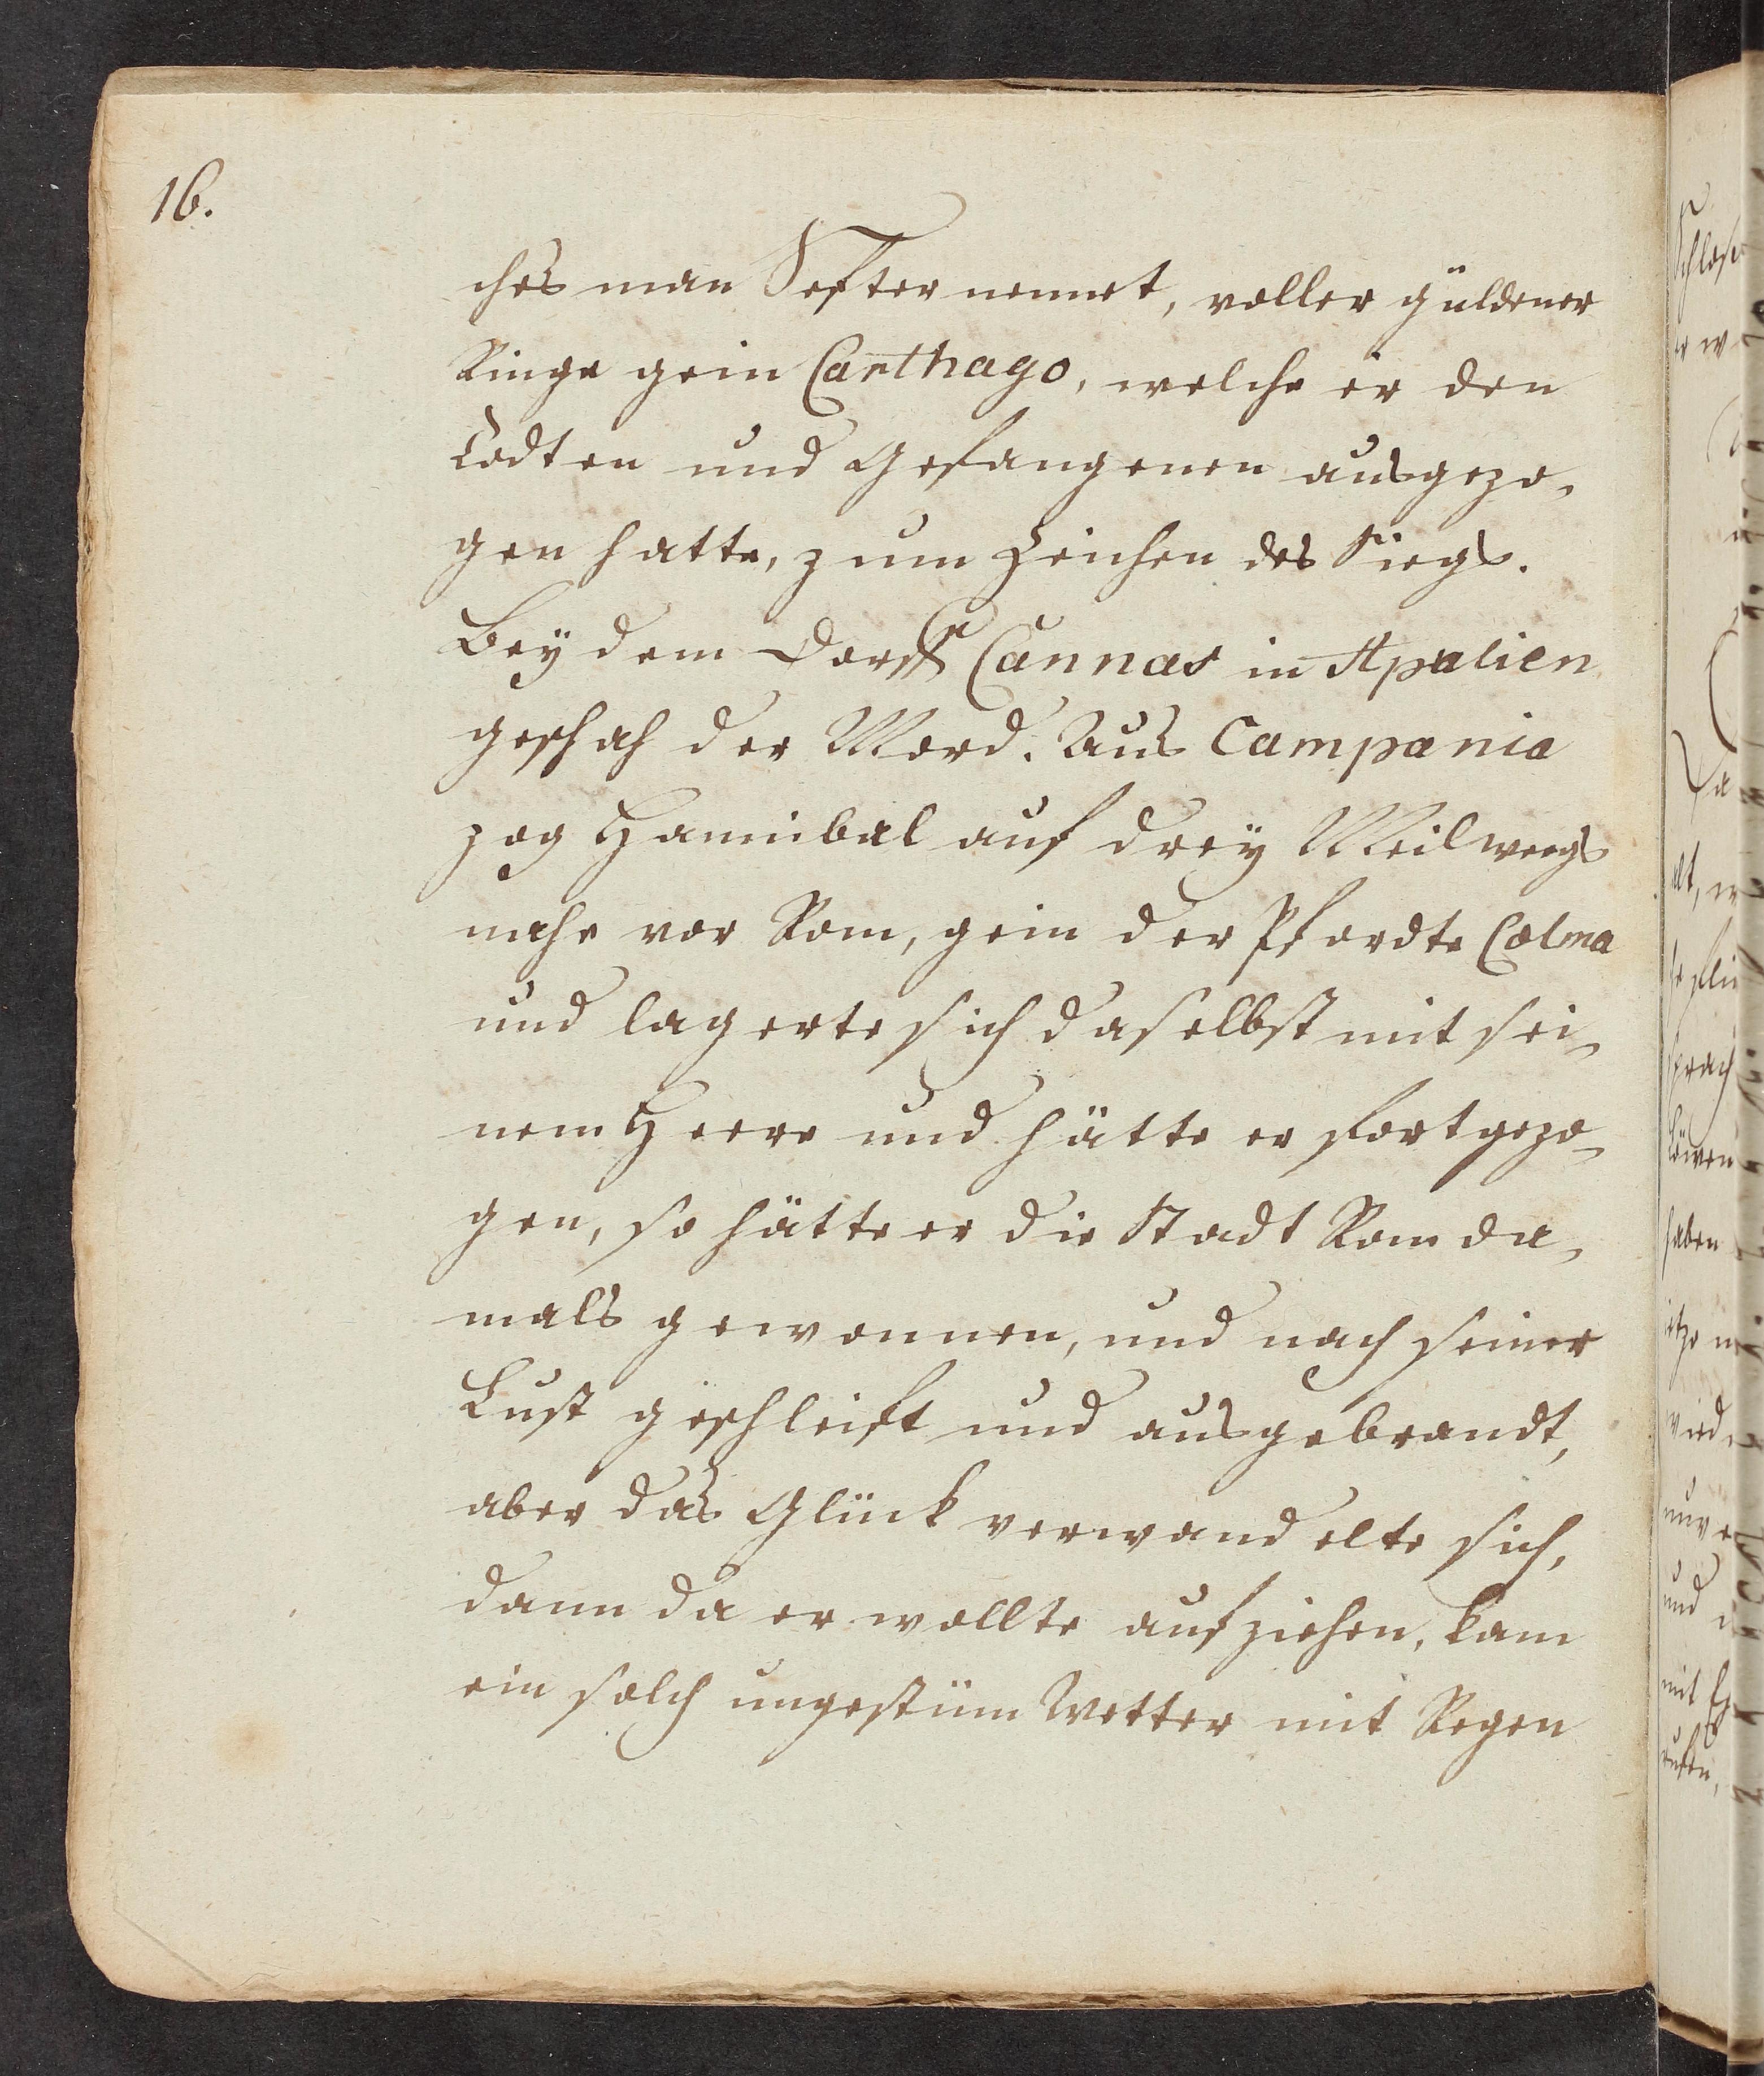 16.
ches man Sester nennet, voller güldener
Ringe gein Carthago, welche er den
Todten und Gefangenen ausgezo-
gen hatte, zum Zeichen des Siegs.
Bey dem Dorff Cannas in Apulien
geschah der Mord. Aus Campania
zog Hannibal auf drey Meil wegs
nahe vor Rom, gein der Pfordte Colma
und lagerte sich daselbst mit sei-
nem Heere und hätte er fortgezo-
gen, so hätte er die Stadt Rom da-
mals gewonnen, und nach seiner
Lust geschleift und ausgebrandt,
aber das Glück verwandelte sich,
dann da er wollte aufziehen, kam
ein solch ungestüm Wetter mit Regen